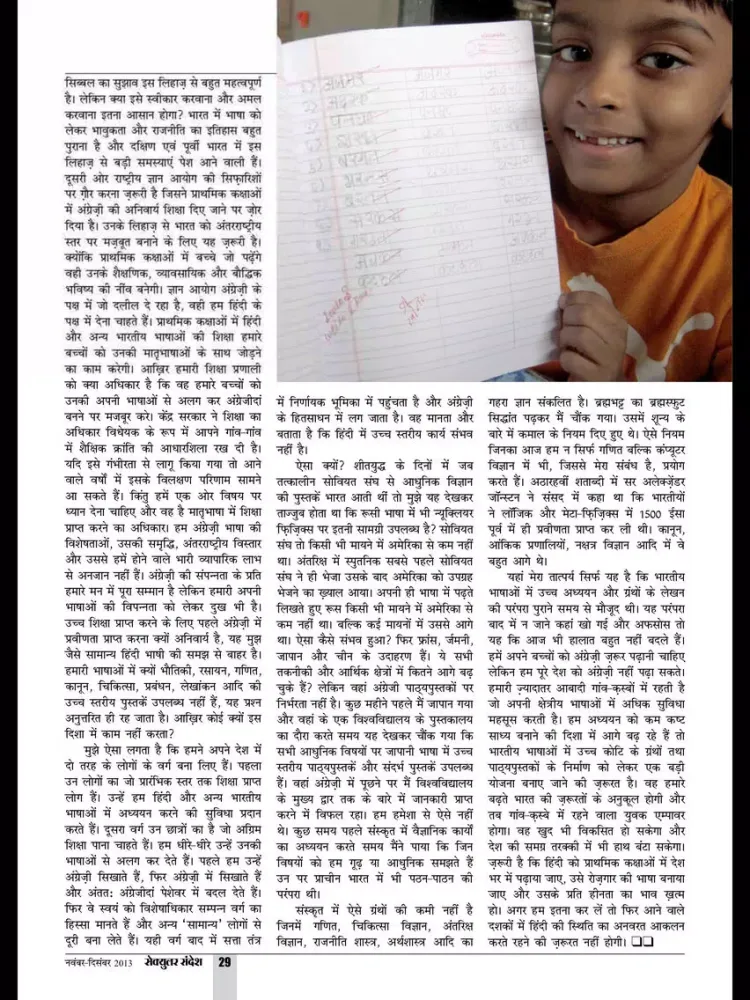 सिब्बल का सुझाव इस लिहाज़ से बहुत महत्वपूर्ण
है। लेकिन क्या इसे स्वीकार करवाना और अमल
करवाना इतना आसान होगा? भारत में भाषा को
लेकर भावुकता और राजनीति का इतिहास बहुत
पुराना है और दक्षिण एवं पूर्वी भारत में इस
लिहाज़ से बड़ी समस्याएं पेश आने वाली हैं।
दूसरी ओर राष्ट्रीय ज्ञान आयोग की सिफ़ारिशों
पर ग़ौर करना ज़रूरी है जिसने प्राथमिक कक्षाओं
में अंग्रेज़ी की अनिवार्य शिक्षा दिए जाने पर ज़ोर
दिया है। उनके लिहाज़ से भारत को अंतरराष्ट्रीय
स्तर पर मज़बूत बनाने के लिए यह ज़रूरी है।
क्योंकि प्राथमिक कक्षाओं में बच्चे जो पढ़ेंगे
वही उनके शैक्षणिक, व्यावसायिक और बौद्धिक
भविष्य की नींव बनेगी। ज्ञान आयोग अंग्रेज़ी के
पक्ष में जो दलील दे रहा है, वही हम हिंदी के
पक्ष में देना चाहते हैं। प्राथमिक कक्षाओं में हिंदी
और अन्य भारतीय भाषाओं की शिक्षा हमारे
बच्चों को उनकी मातृभाषाओं के साथ जोड़ने
का काम करेगी। आख़िर हमारी शिक्षा प्रणाली
को क्या अधिकार है कि वह हमारे बच्चों को
उनकी अपनी भाषाओं से अलग कर अंग्रेजीदां
बनने पर मजबूर करे। केंद्र सरकार ने शिक्षा का
अधिकार विधेयक के रूप में आपने गांव-गांव
में शैक्षिक क्रांति की आधारशिला रख दी है।
यदि इसे गंभीरता से लागू किया गया तो आने
वाले वर्षों में इसके विलक्षण परिणाम सामने
आ सकते हैं। किंतु हमें एक ओर विषय पर
ध्यान देना चाहिए और वह है मातृभाषा में शिक्षा
प्राप्त करने का अधिकार। हम अंग्रेज़ी भाषा की
विशेषताओं, उसकी समृद्धि, अंतरराष्ट्रीय विस्तार
और उससे हमें होने वाले भारी व्यापारिक लाभ
से अनजान नहीं हैं। अंग्रेज़ी की संपन्नता के प्रति
हमारे मन में पूरा सम्मान है लेकिन हमारी अपनी
भाषाओं की विपन्नता को लेकर दुख भी है।
उच्च शिक्षा प्राप्त करने के लिए पहले अंग्रेज़ी में
प्रवीणता प्राप्त करना क्यों अनिवार्य है, यह मुझ
जैसे सामान्य हिंदी भाषी की समझ से बाहर है।
हमारी भाषाओं में क्यों भौतिकी, रसायन, गणित,
कानून, चिकित्सा, प्रबंधन, लेखांकन आदि की
उच्च स्तरीय पुस्तकें उपलब्ध नहीं हैं, यह प्रश्न
अनुत्तरित ही रह जाता है। आख़िर कोई क्यों इस
दिशा में काम नहीं करता?
मुझे ऐसा लगता है कि हमने अपने देश में
दो तरह के लोगों के वर्ग बना लिए हैं। पहला
उन लोगों का जो प्रारंभिक स्तर तक शिक्षा प्राप्त
लोग हैं। उन्हें हम हिंदी और अन्य भारतीय
भाषाओं में अध्ययन करने की सुविधा प्रदान
करते हैं। दूसरा वर्ग उन छात्रों का है जो अग्रिम
शिक्षा पाना चाहते हैं। हम धीरे-धीरे उन्हें उनकी
भाषाओं से अलग कर देते हैं। पहले हम उन्हें
अंग्रेज़ी सिखाते हैं, फिर अंग्रेज़ी में सिखाते हैं
और अंततः अंग्रेजीदां पेशेवर में बदल देते हैं।
फिर वे स्वयं को विशेषाधिकार सम्पन्न वर्ग का
हिस्सा मानते हैं और अन्य ‘सामान्य’ लोगों से
दूरी बना लेते हैं। यही वर्ग बाद में सत्ता तंत्र
में निर्णायक भूमिका में पहुंचता है और अंग्रेज़ी
के हितसाधन में लग जाता है। वह मानता और
बताता है कि हिंदी में उच्च स्तरीय कार्य संभव
नहीं है।
ऐसा क्यों? शीतयुद्ध के दिनों में जब
तत्कालीन सोवियत संघ से आधुनिक विज्ञान
की पुस्तकें भारत आती थीं तो मुझे यह देखकर
ताज्जुब होता था कि रूसी भाषा में भी न्यूक्लियर
फिज़िक्स पर इतनी सामग्री उपलब्ध है? सोवियत
संघ तो किसी भी मायने में अमेरिका से कम नहीं
था। अंतरिक्ष में स्पुतनिक सबसे पहले सोवियत
संघ ने ही भेजा उसके बाद अमेरिका को उपग्रह
भेजने का ख़्याल आया। अपनी ही भाषा में पढ़ते
लिखते हुए रूस किसी भी मायने में अमेरिका से
कम नहीं था। बल्कि कई मायनों में उससे आगे
था। ऐसा कैसे संभव हुआ? फिर फ्रांस, जर्मनी,
जापान और चीन के उदाहरण हैं। ये सभी
तकनीकी और आर्थिक क्षेत्रों में कितने आगे बढ़
चुके हैं? लेकिन वहां अंग्रेजी पाठ्यपुस्तकों पर
निर्भरता नहीं है। कुछ महीने पहले मैं जापान गया
और वहां के एक विश्वविद्यालय के पुस्तकालय
का दौरा करते समय यह देखकर चौंक गया कि
सभी आधुनिक विषयों पर जापानी भाषा में उच्च
स्तरीय पाठ्यपुस्तकें और संदर्भ पुस्तकें उपलब्ध
हैं। वहां अंग्रेज़ी में पूछने पर मैं विश्वविद्यालय
के मुख्य द्वार तक के बारे में जानकारी प्राप्त
करने में विफल रहा। हम हमेशा से ऐसे नहीं
थे। कुछ समय पहले संस्कृत में वैज्ञानिक कार्यों
का अध्ययन करते समय मैंने पाया कि जिन
विषयों को हम गूढ़ या आधुनिक समझते हैं
उन पर प्राचीन भारत में भी पठन-पाठन की
परंपरा थी।
संस्कृत में ऐसे ग्रंथों की कमी नहीं है
जिनमें गणित, चिकित्सा विज्ञान, अंतरिक्ष
विज्ञान, राजनीति शास्त्र, अर्थशास्त्र आदि का
गहरा ज्ञान संकलित है। ब्रह्मभट्ट का ब्रह्मस्फुट
सिद्धांत पढ़कर मैं चौंक गया। उसमें शून्य के
बारे में कमाल के नियम दिए हुए थे। ऐसे नियम
जिनका आज हम न सिर्फ गणित बल्कि कंप्यूटर
विज्ञान में भी, जिससे मेरा संबंध है, प्रयोग
करते हैं। अठारहवीं शताब्दी में सर अलेक्ज़ेंडर
जॉन्स्टन ने संसद में कहा था कि भारतीयों
ने लॉजिक और मेटा-फ़िज़िक्स में 1500 ईसा
पूर्व में ही प्रवीणता प्राप्त कर ली थी। कानून,
आंकिक प्रणालियों, नक्षत्र विज्ञान आदि में वे
बहुत आगे थे।
यहां मेरा तात्पर्य सिर्फ यह है कि भारतीय
भाषाओं में उच्च अध्ययन और ग्रंथों के लेखन
की परंपरा पुराने समय से मौजूद थी। यह परंपरा
बाद में न जाने कहां खो गई और अफसोस तो
यह कि आज भी हालात बहुत नहीं बदले हैं।
हमें अपने बच्चों को अंग्रेज़ी ज़रूर पढ़ानी चाहिए
लेकिन हम पूरे देश को अंग्रेज़ी नहीं पढ़ा सकते।
हमारी ज़्यादातर आबादी गांव-क़स्बों में रहती है
जो अपनी क्षेत्रीय भाषाओं में अधिक सुविधा
महसूस करती है। हम अध्ययन को कम कष्ट
साध्य बनाने की दिशा में आगे बढ़ रहे हैं तो
भारतीय भाषाओं में उच्च कोटि के ग्रंथों तथा
पाठ्यपुस्तकों के निर्माण को लेकर एक बड़ी
योजना बनाए जाने की ज़रूरत है। वह हमारे
बढ़ते भारत की ज़रूरतों के अनुकूल होगी और
तब गांव-क़स्बे में रहने वाला युवक एम्पावर
होगा। वह खुद भी विकसित हो सकेगा और
देश की समग्र तरक्की में भी हाथ बंटा सकेगा।
ज़रूरी है कि हिंदी को प्राथमिक कक्षाओं में देश
भर में पढ़ाया जाए, उसे रोज़गार की भाषा बनाया
जाए और उसके प्रति हीनता का भाव ख़त्म
हो। अगर हम इतना कर लें तो फिर आने वाले
दशकों में हिंदी की स्थिति का अनवरत आकलन
करते रहने की ज़रूरत नहीं होगी। ❑❑
नवंबर-दिसंबर 2013 सेक्युलर संदेश 29